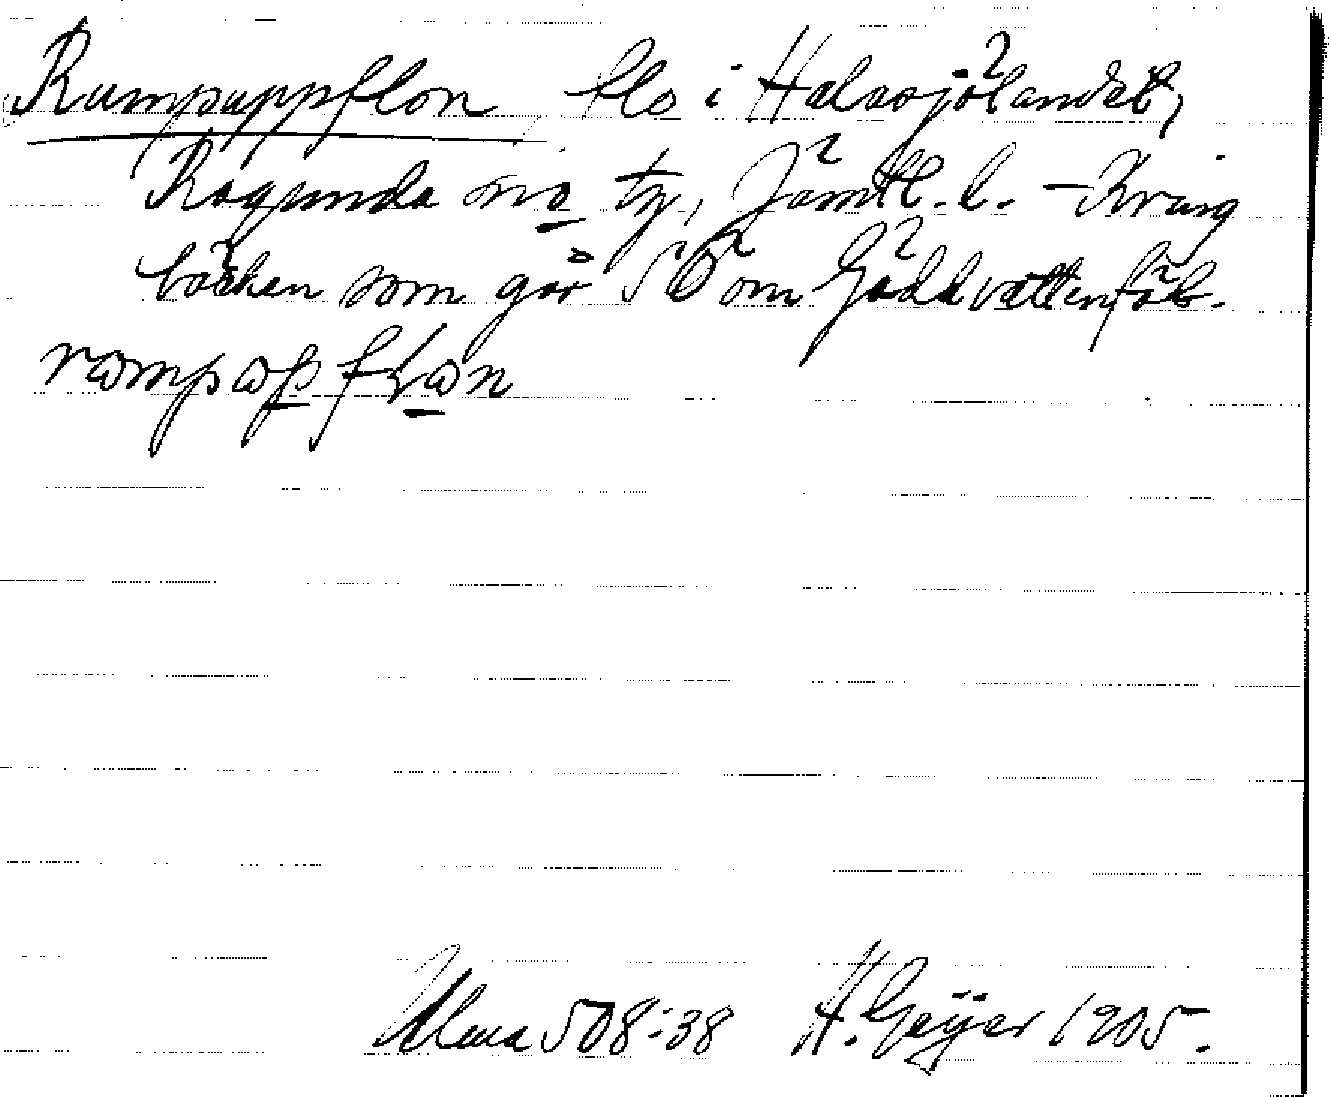 Rumpuppflon flo i Halasjölandet,
Ragunda sn o tg, Jämtl. l. – Kring
bäcken som går SÖ om Gäddvattenfäb.
rompopflon
Ulma 508:38 H. Geijer 1905.